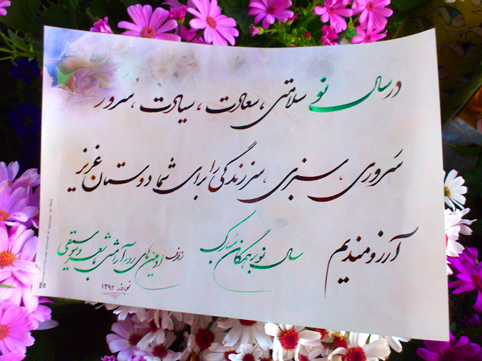 در سال نو سلامتی، سعادت، سیادت، سُرور
سَروری، سبزی، سرزندگی را برای شما دوستان عزیز
آرزومندیم
سال نو بر همگان مبارک
نوروز ۱۳۹۲